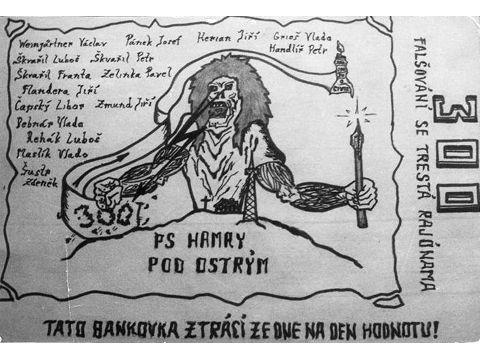 Weingärtner Václav Pánek Josef Herian Jiří Grieš Vlada
Handlíř Petr
Škvařil Luboš Škvařil Petr
Škvařil Franta Zelinka Pavel
Flandera Jiří
Čapský Libor Zmund Jiří
Bednár Vlado
Řehák Luboš
Maslík Vlado
Šustr
Zdeněk
300
PS HAMRY
POD OSTRÝM
TATO BANKOVKA ZTRÁCÍ ZE DNE NA DEN HODNOTU!
FALŠOVÁNÍ SE TRESTÁ RAJÓNAMA
300